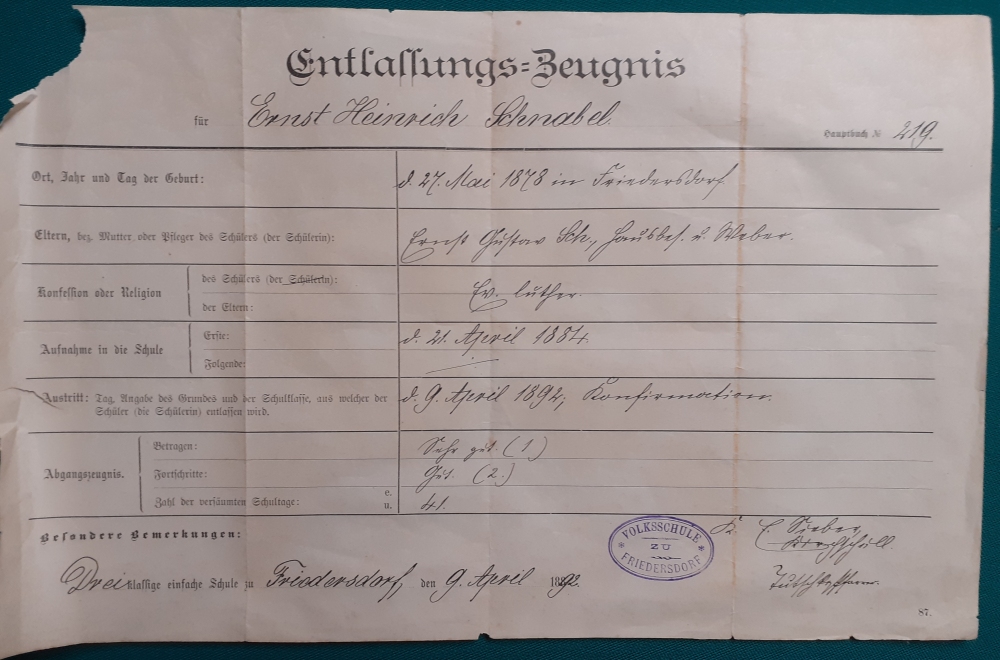 Entlassungs=Zeugnis
für Ernst Heinrich Schnabel.
Hauptbuch № 219.
Ort, Jahr und Tag der Geburt: d. 27. Mai 1878 in Friedersdorf
Eltern, bez. Mutter oder Pfleger des Schülers (der Schülerin): Ernst Gustav Sch., Hausbes. u. Weber.
Konfession oder Religion
des Schülers (der Schülerin):
der Eltern:
Ev. luther.
Aufnahme in die Schule
Erste: d. 21. April 1884.
Folgende: —
Austritt: Tag, Angabe des Grundes und der Schulklasse, aus welcher der
Schüler (die Schülerin) entlassen wird.
d. 9. April 1892; Konfirmation.
Abgangszeugnis.
Betragen: Sehr gut. (1)
Fortschritte: Gut. (2.)
Zahl der versäumten Schultage: e.
u. 41.
Besondere Bemerkungen:
* VOLKSSCHULE *
ZU
FRIEDERSDORF
E. Sieber
Kirchschull.
Dreiklassige einfache Schule zu Friedersdorf, den 9. April 1892.
87.